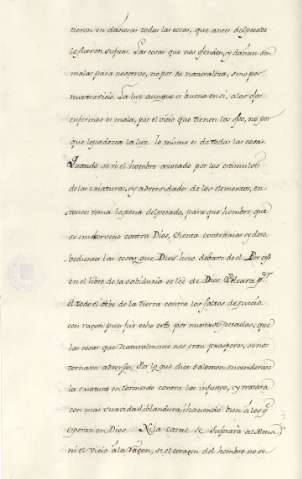 tieron en dañosas todas las cosas, que antes del pecado
le fueron sujetas. Las cosas que nos ofenden, y dañan son
malas para nosotros, no por su naturaleza, sino por
nuestro vicio. La luz aunque es buena en si, a los ojos
enfermos es mala, por el vicio que tienen los ojos, no por
que lo padezca la luz. lo mismo es de todas las cosas.
Quando será el hombre acosado por los estimulos
de las criaturas, y los de los elementos, en
tonces verá la pena del pecado, para que hombre, que
se contra Dios, sienta contrarias y
las cosas que Dios hizo debaxo de el. Por esso
en el libro de la sabiduria se lee de Dios. Peleará por
el todo el orbe de la tierra contra los faltos de juicio.
con razon pues fue echo esto por nuestros pecados, que
las cosas que naturalmente nos eran prosperas, se nos
tornasen adversas. Por lo que dice Salomon se encenderá
la criatura en tormento contra los injustos, y tratará
con mas suavidad, y blandura, haciendo bien a los que
esperan en Dios. Ni la carne
ni el vicio a la razon, si el coraçon del hombre no se